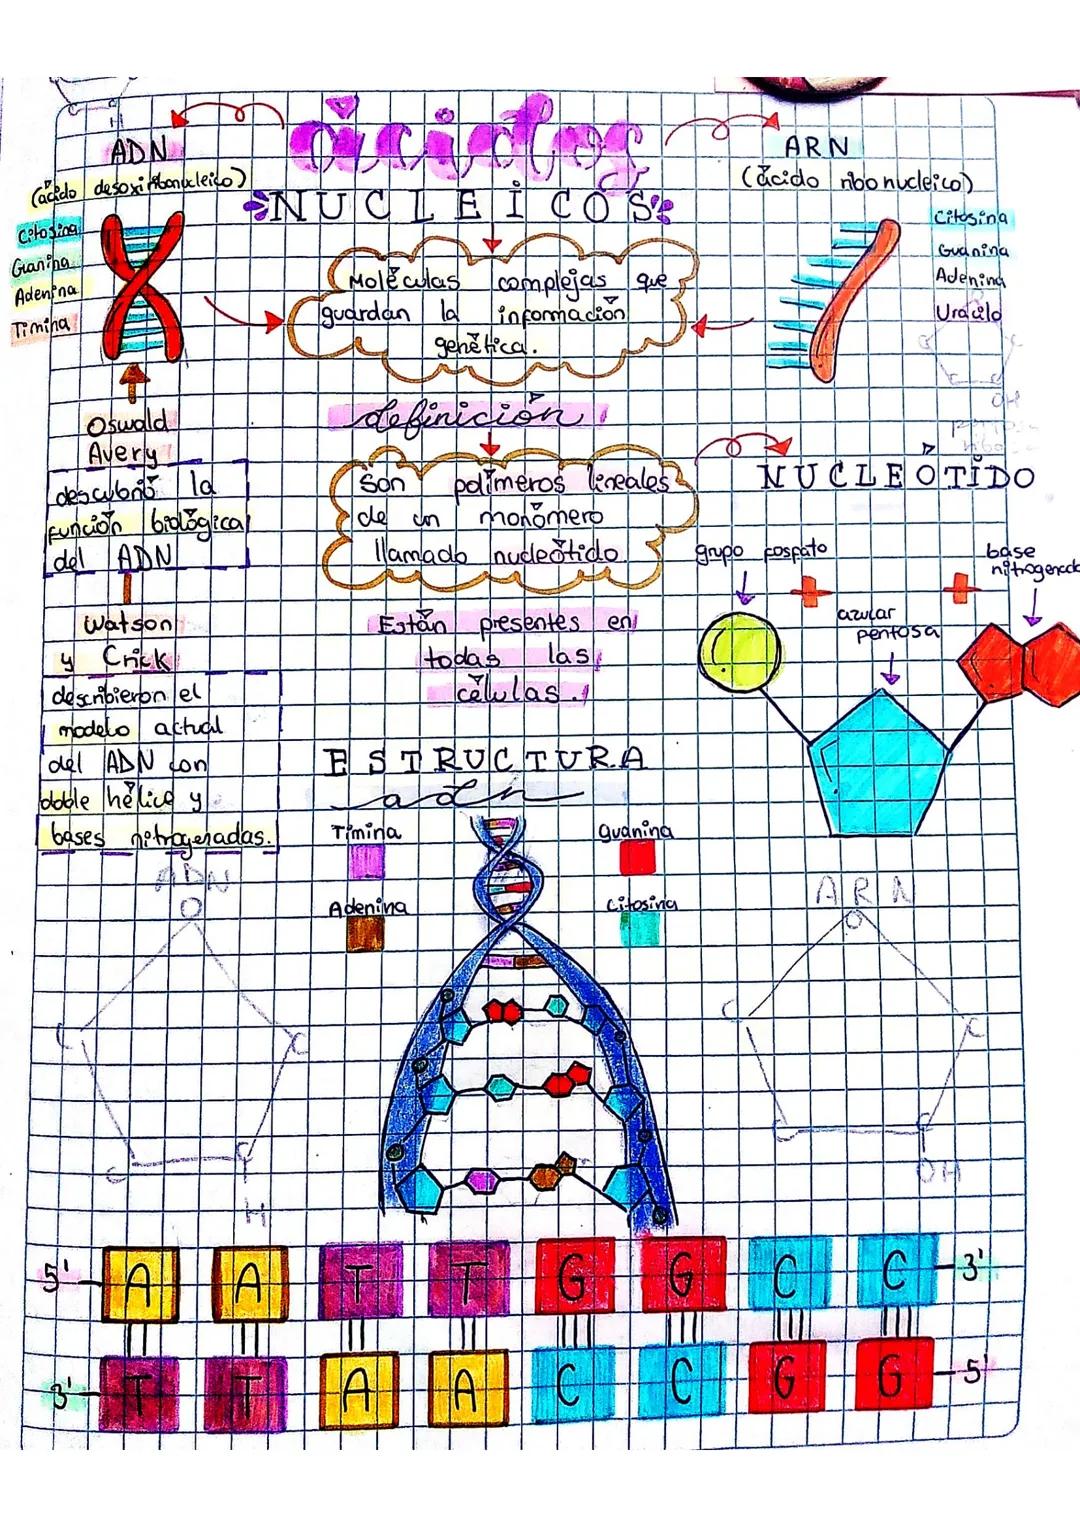 ácidos
NUCLEÍCOS
ADN
(ácido desoxirribonucleico)
Citosina
Guanina
Adenina
Timina
ARN
(ácido ribonucleico)
Citosina
Guanina
Adenina
Uracilo
OH
Moléculas complejas que
guardan la información
genética.
definición
Son polímeros lineales
de un monómero
llamado nucleótido.
Están presentes en
todas las
células.
Oswald
Avery
descubrió la
función biológica
del ADN
Watson
y Crick
describieron el
modelo actual
del ADN con
doble hélice y
bases nitrogenadas.
NUCLEÓTIDO
grupo fosfato
azucar
pentosa
base
nitrogenada
ESTRUCTURA
adn
Timina
Guanina
Adenina
Citosina
ADN
O
C
C
C
C
H
ARN
O
C
C
C
OH
5' A A T T G G C C 3'
3' T T A A C C G G 5'